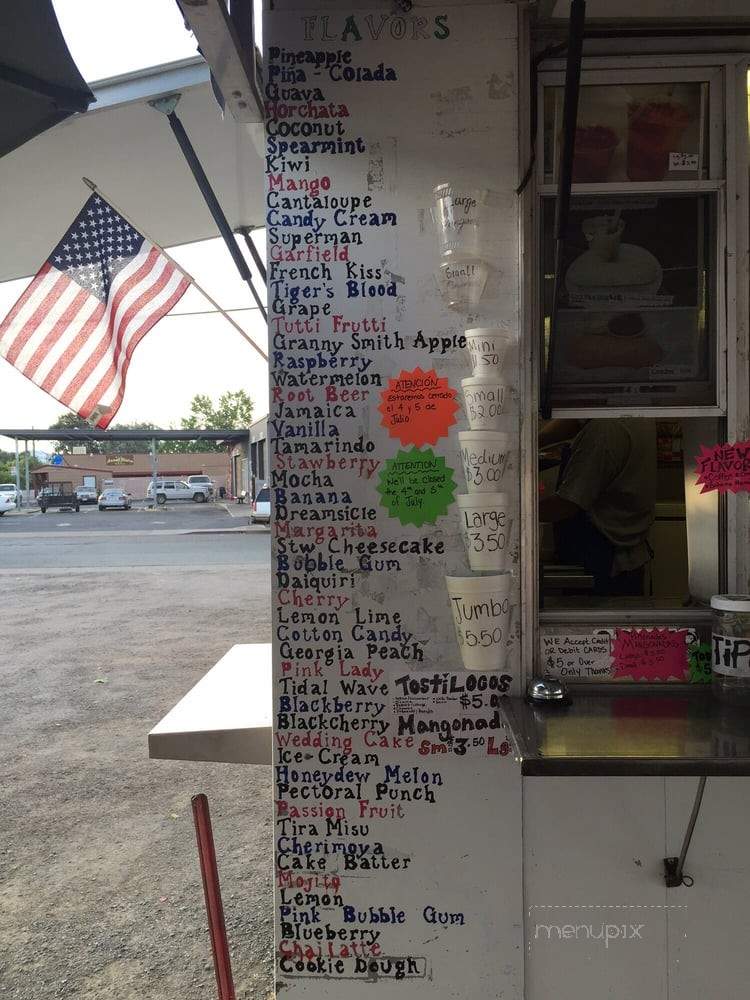 FLAVORS
Pineapple
Piña - Colada
Guava
Horchata
Coconut
Spearmint
Kiwi
Mango
Cantaloupe
Candy Cream
Superman
Garfield
French Kiss
Tiger's Blood
Grape
Tutti Frutti
Granny Smith Apple
Raspberry
Watermelon
Root Beer
Jamaica
Vanilla
Tamarindo
Stawberry
Mocha
Banana
Dreamsicle
Margarita
Stw Cheesecake
Bubble Gum
Daiquiri
Cherry
Lemon Lime
Cotton Candy
Georgia Peach
Pink Lady
Tidal Wave
Blackberry
Blackcherry
Wedding Cake
Ice-Cream
Honeydew Melon
Pectoral Punch
Passion Fruit
Tira Misu
Cherimoya
Cake Batter
Mojito
Lemon
Pink Bubble Gum
Blueberry
Chai Latte
Cookie Dough
ATENCIÓN
Estaremos cerrado
el 4 y 5 de
Julio.
ATTENTION
We'll be closed
the 4th and 5th
of July
Large
Small
Mini
$1.50
Small
$2.00
Medium
$3.00
Large
$3.50
Jumbo
$5.50
TostiLocos
$5.0
Mangonad
Sm $3.50 Lg
NEW
FLAVOR
WE Accept Credit
OR Debit CARDS
$5 or Over
Only Thanks
TiP
menupix